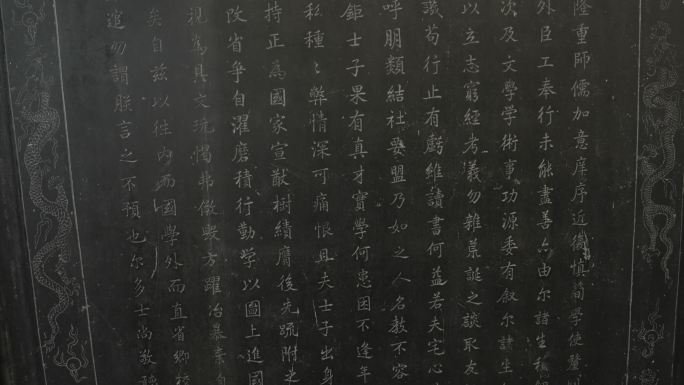 隆重師儒加意庠序近復慎簡學使釐
外臣工奉行未能盡善亦由尔諸生積
次及文學學術事功源委有叙尔諸生
以立志窮經考義勿雜荒誕之談取友
譏苟行止有虧雖讀書何益若夫宅心
呼朋類結社要盟乃如之人名教不容
鉅士子果有真才實學何患困不逢年
私種〻弊情深可痛恨且夫士子出身
持正為國家宣猷樹績膺後先疏附之
改省爭自濯磨積行勤學以圖上進國
視為具文玩愒弗儆毀方躍冶暴棄自
矣自兹以徃內而國學外而直省鄉校
逭勿謂朕言之不預也尔多士尚敬聽